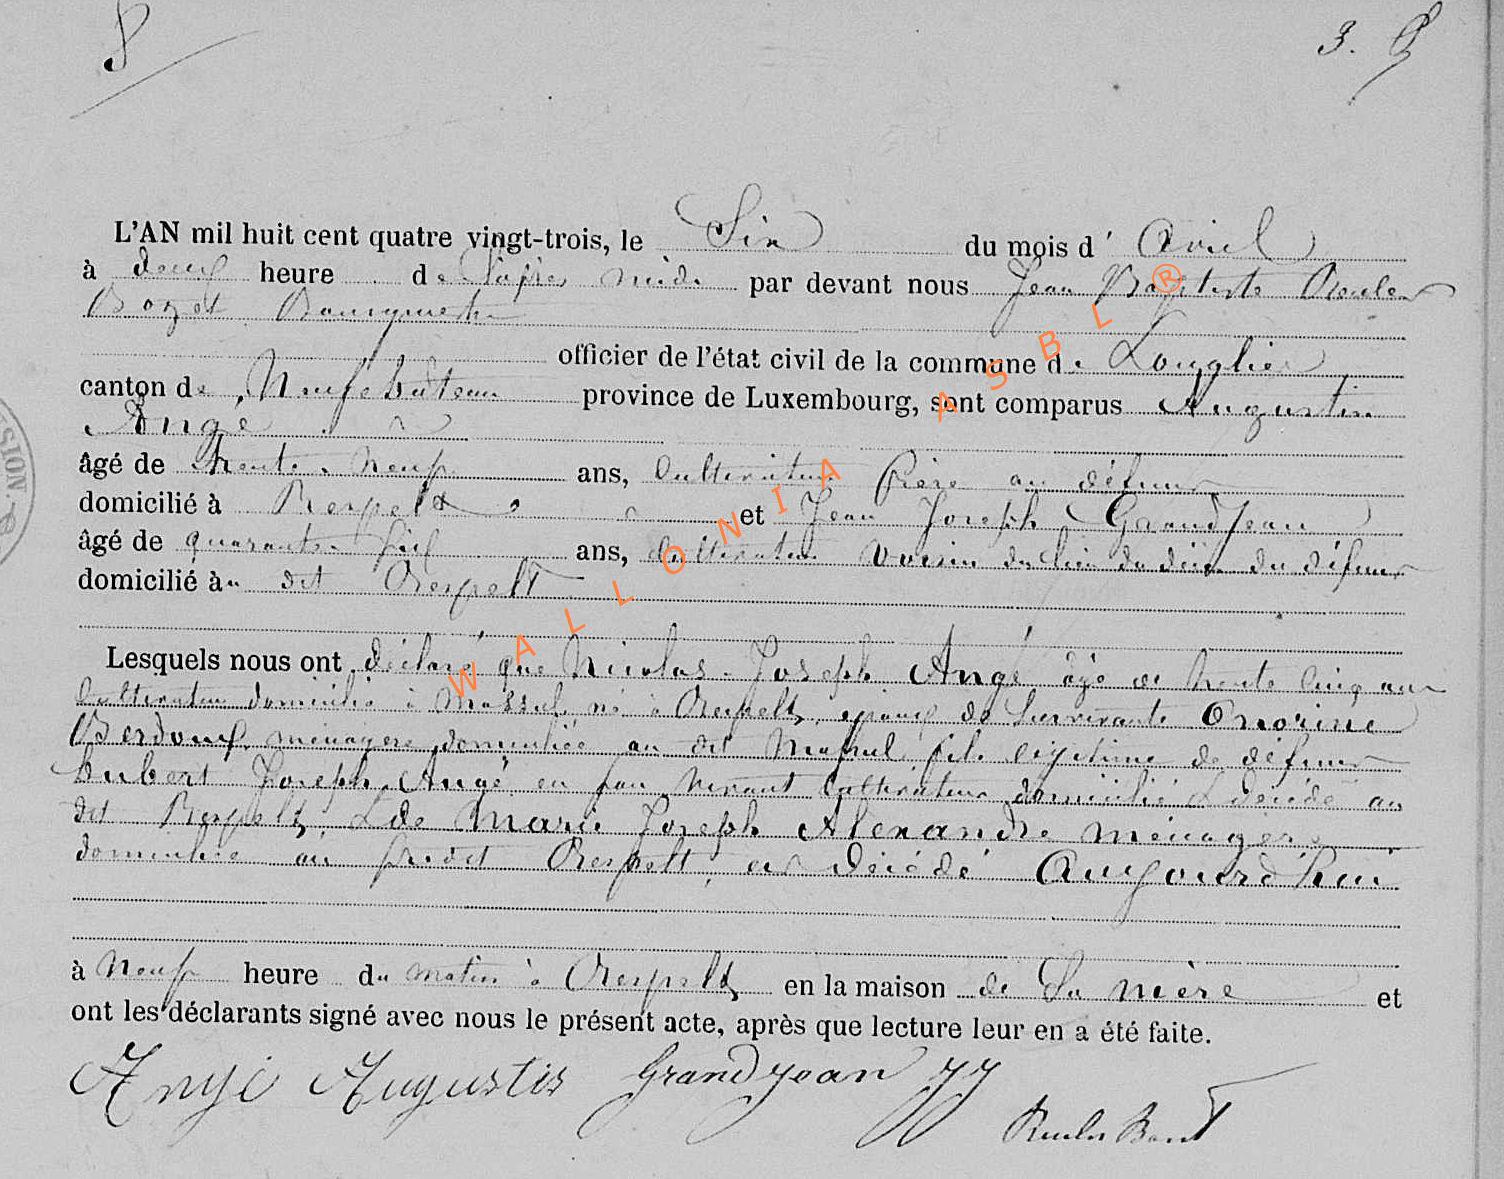 8 3. 8
L'AN mil huit cent quatre vingt-trois, le Six du mois d' Avril
à deux heure de l'après midi par devant nous Jean Baptiste Reuler
Bozet Bourgmestre
officier de l'état civil de la commune de Longlier
canton de Neufchâteau province de Luxembourg, sont comparus Augustin
Angé
âgé de trente neuf ans, Cultivateur frère au défunt
domicilié à Respelt et Jean Joseph Grandjean
âgé de quarante six ans, Cultivateur voisin du lieu du décès du défunt
domicilié au dit Respelt
Lesquels nous ont déclaré que Nicolas Joseph Angé âgé de trente cinq ans
Cultivateur domicilié à Massul né à Respelt, époux de Survivante Onorine
ménagère domiciliée au dit Massul fils légitime de défunt
hubert Joseph Angé en son vivant Cultivateur domicilié & décédé au
dit Respelt, & de Marie Joseph Alexandre ménagère
domiciliée au prédit Respelt, est décédé Aujourd'hui
à Neuf heure du matin à Respelt en la maison de Sa mère et
ont les déclarants signé avec nous le présent acte, après que lecture leur en a été faite.
Angé Augustin Grandjean JJ
Reuler Bozet
WALLONIA ASBL ®